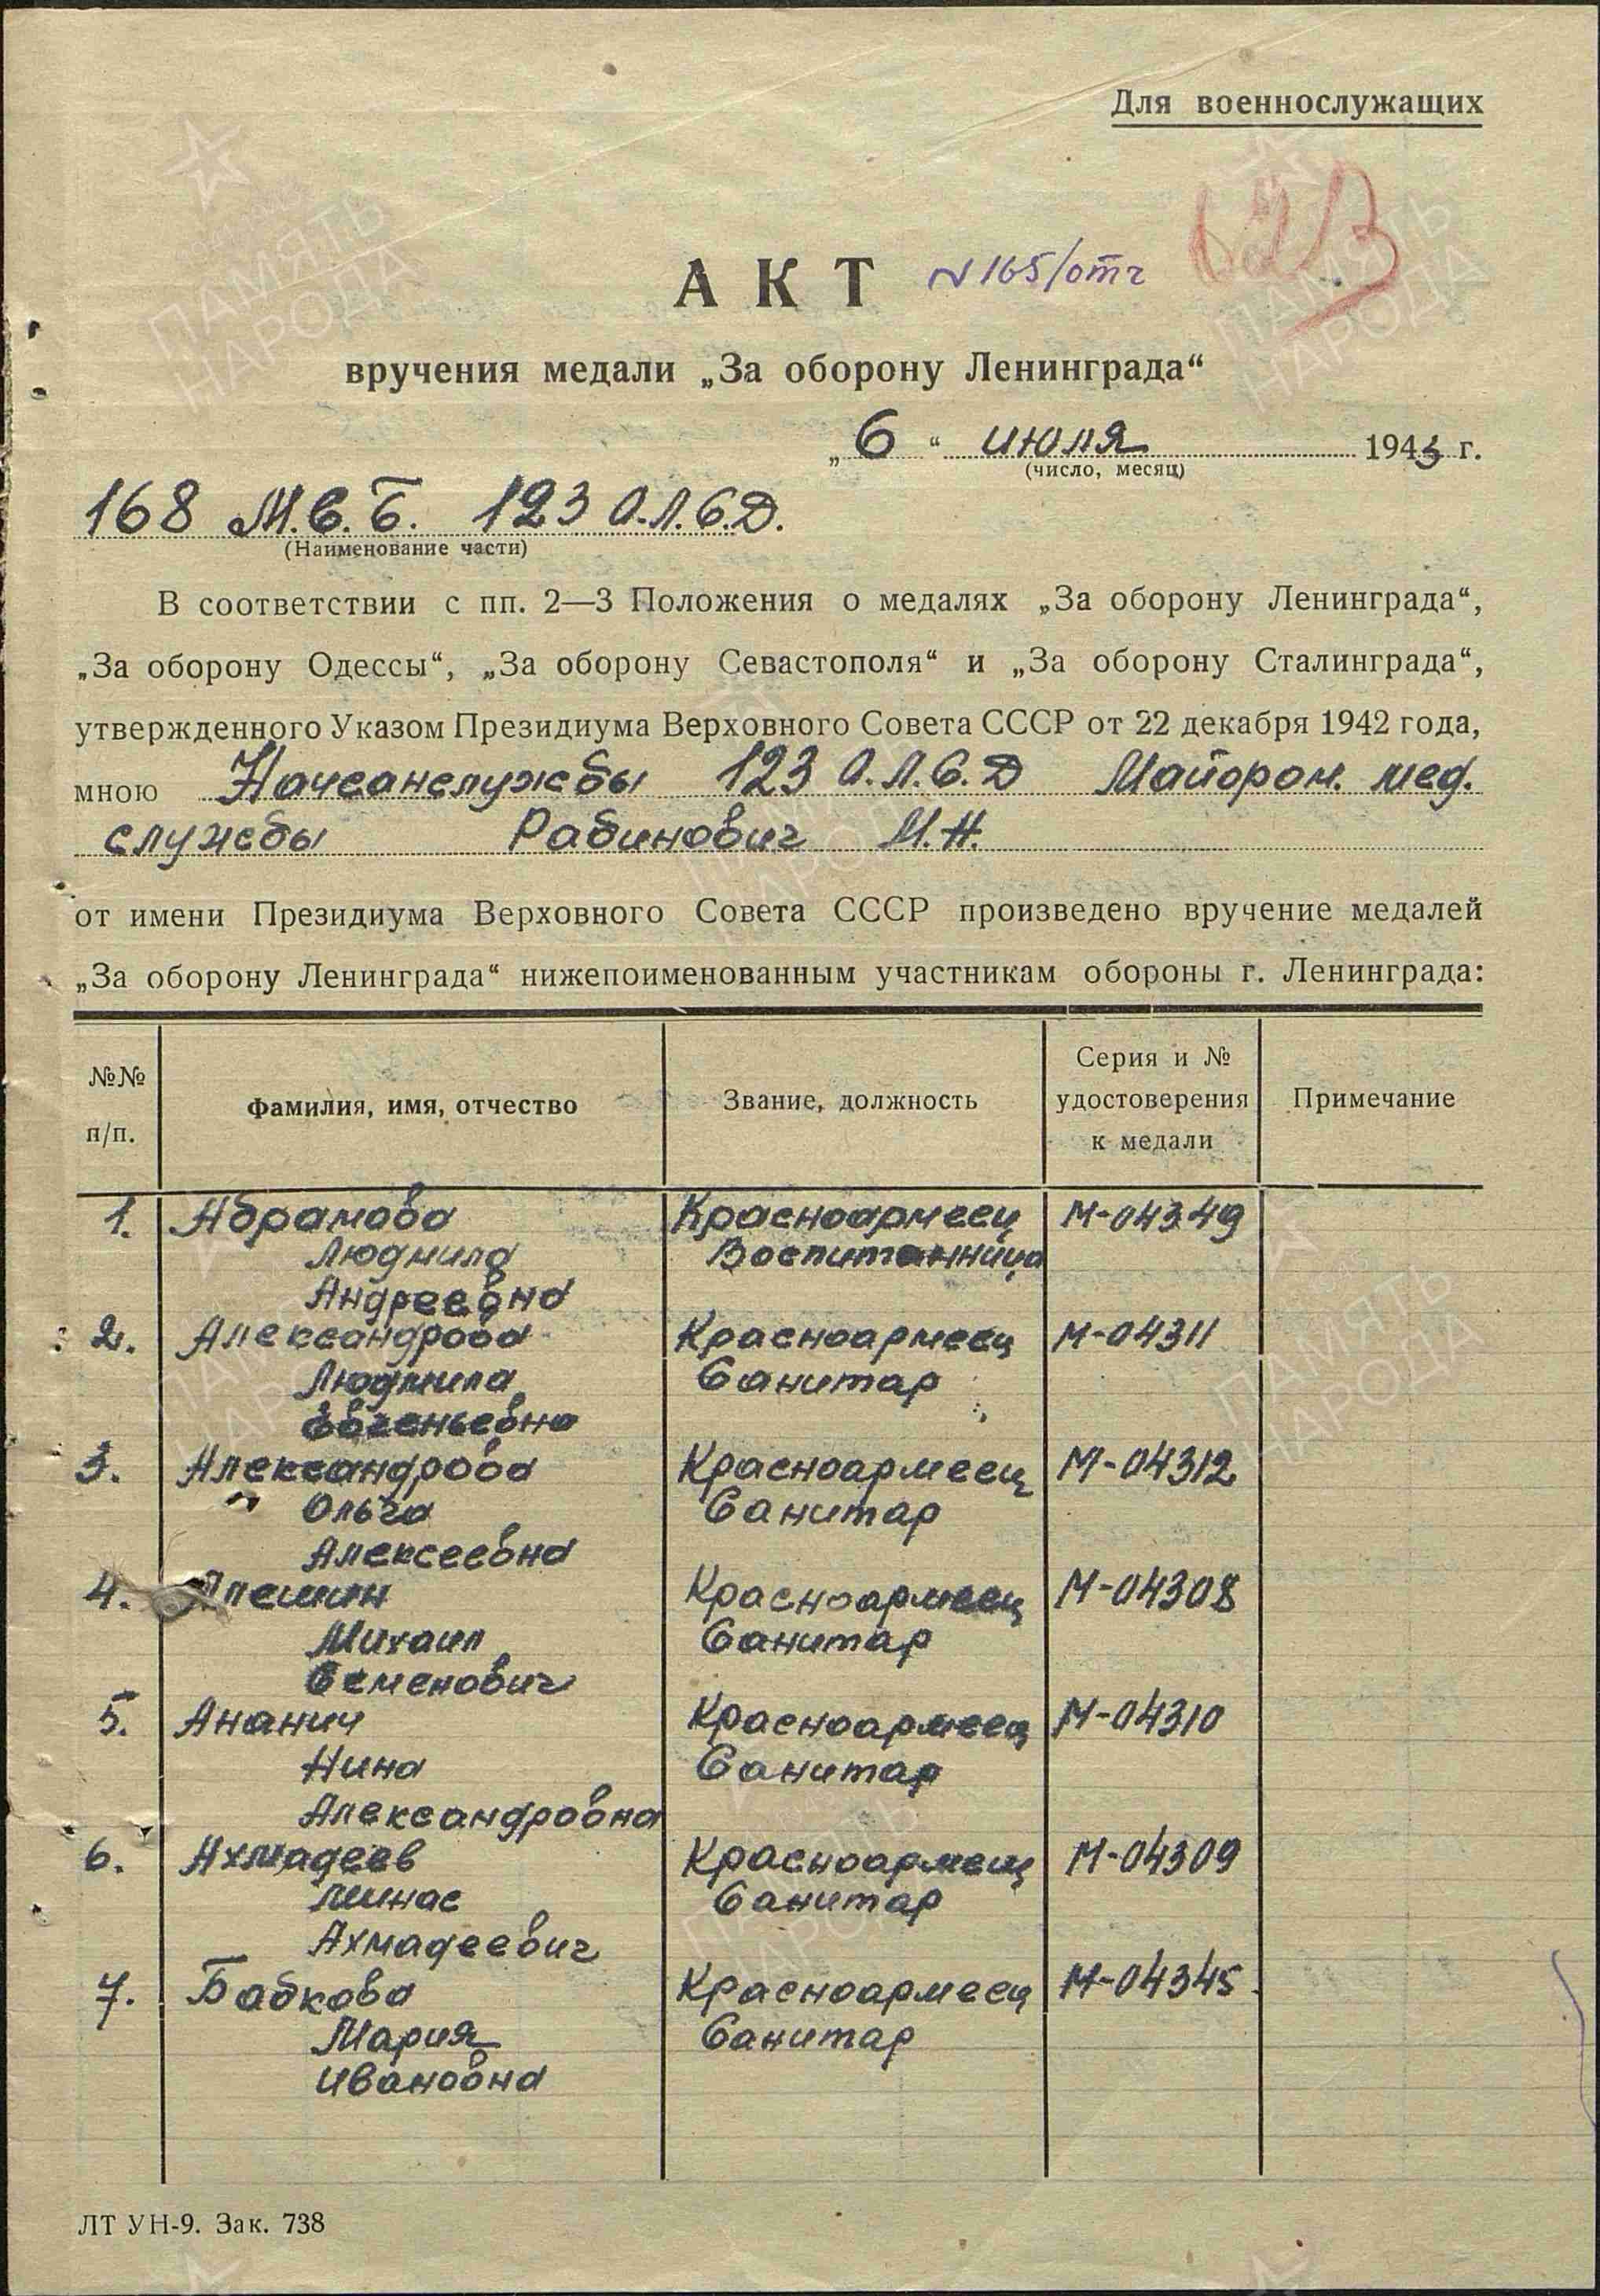 Для военнослужащих
АКТ N 165/отч
вручения медали „За оборону Ленинграда“
„6“ июля 1943 г.
(число, месяц)
168 М.С.Б. 123 О.Л.С.Д.
(Наименование части)
В соответствии с пп. 2—3 Положения о медалях „За оборону Ленинграда“,
„За оборону Одессы“, „За оборону Севастополя“ и „За оборону Сталинграда“,
утвержденного Указом Президиума Верховного Совета СССР от 22 декабря 1942 года,
мною Начсанслужбы 123 О.Л.С.Д Майором. мед.
службы Рабинович И.Н.
от имени Президиума Верховного Совета СССР произведено вручение медалей
„За оборону Ленинграда“ нижепоименованным участникам обороны г. Ленинграда:
№№ п/п. Фамилия, имя, отчество Звание, должность Серия и № удостоверения к медали Примечание
1. Абрамова Красноармеец М-04349
Людмила Воспитанница
Андреевна
2. Александрова Красноармеец М-04311
Людмила Санитар
Евгеньевна
3. Александрова Красноармеец М-04312
Ольга Санитар
Алексеевна
4. Красноармеец М-04308
Михаил Санитар
Семенович
5. Ананич Красноармеец М-04310
Нина Санитар
Александровна
6. Ахмадеев Красноармеец М-04309
Санитар
Ахмадеевич
7. Бабкова Красноармеец М-04345
Мария Санитар
Ивановна
ЛТ УН-9. Зак. 738
ПАМЯТЬ НАРОДА